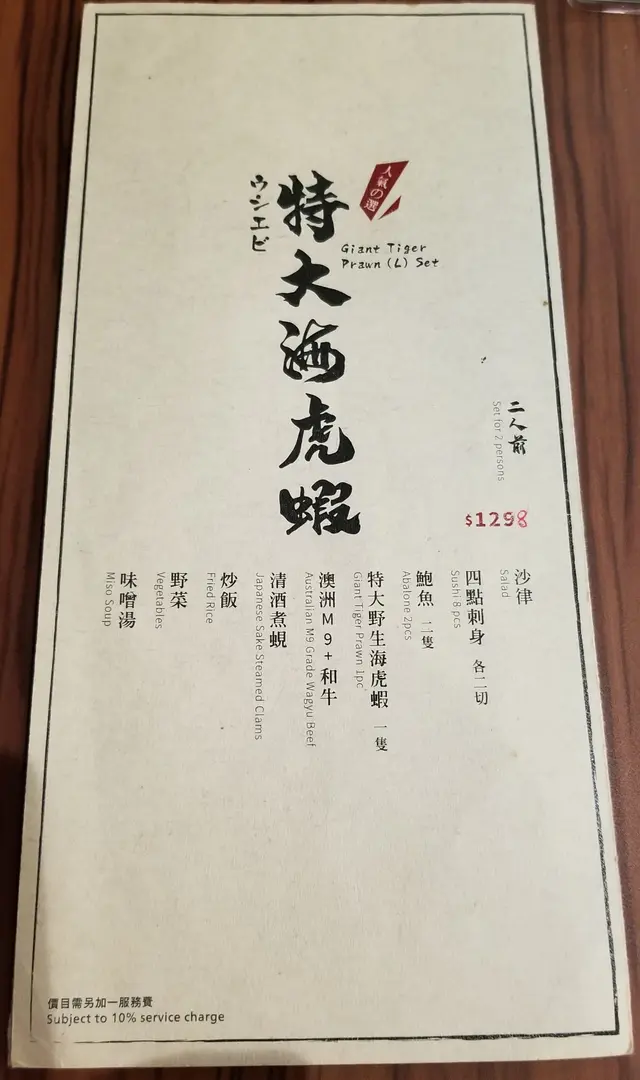 人氣の選
特大海虎蝦
ウシエビ
Giant Tiger
Prawn (L) Set
二人前
Set for 2 persons
$1298
沙律
Salad
四點刺身 各二切
Sushi 8 pcs
鮑魚 二隻
Abalone 2pcs
特大野生海虎蝦 一隻
Giant Tiger Prawn 1pc
澳洲M9+和牛
Australian M9 Grade Wagyu Beef
清酒煮蜆
Japanese Sake Steamed Clams
炒飯
Fried Rice
野菜
Vegetables
味噌湯
Miso Soup
價目需另加一服務費
Subject to 10% service charge